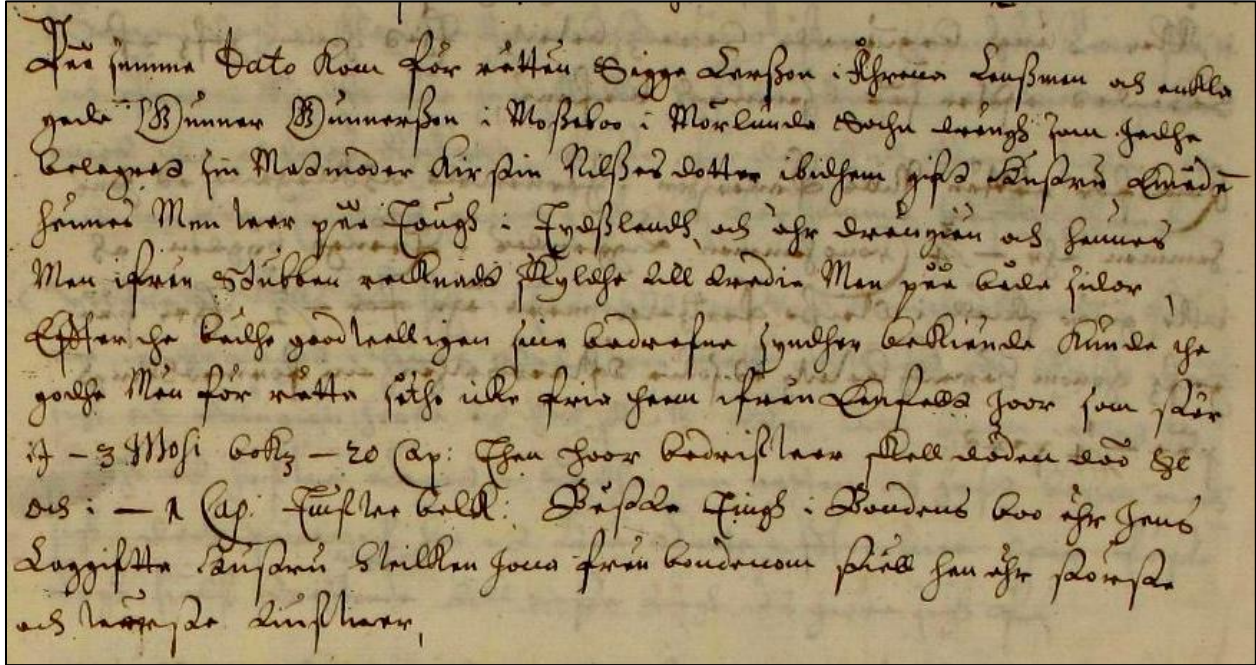 På samma Dato Kom för rätten Sigge Larßon i Århena Länßman och ankla
gade Gunner Gunnerßon i Moßeboo i Mörlunda Sochn drängh som hadhe
belägrat sin Matmoder Kirstin Nilßes dotter ibidhem gift Hustru, Emädē
hennes Man war på Tough i Tydßlandh, och ähr drängien och hennes
Man ifrån Stubben recknadt skyldhe till tredie Man på båda sidor,
Effter the bådhe godwelligen sine bedrefne syndher bekiende Kunde the
godhe Män för rätta sithe icke fria them ifrån Enfalt hoor som står
if – 3 Mosi bokz – 20 Cap: Then hoor bedrifwer skall döden döö &c
och i – 1 Cap: Tiufwe balk: Bäste Tingh i Bondens boo ähr hans
Laggiftta Hustru hwilken hona från bondenom stiell han ähr störste
och wärste tiufwer,